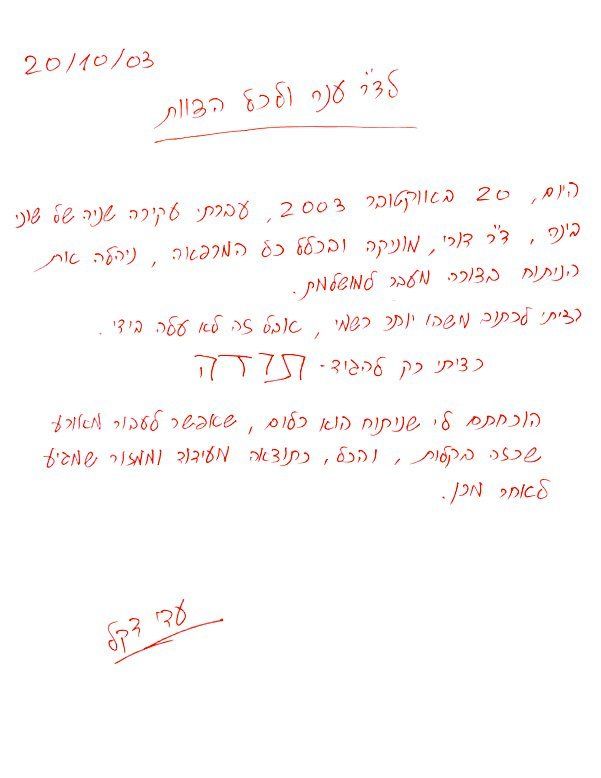 20/10/03
לד"ר ענר ולכל הצוות
היום, 20 באווקטובר 2003, עברתי עקירה שניה של שיני
בינה, ד"ר דורי, מוניקה ובכלל כל המרפאה, ניהלה את
הניתוח בצורה מעבר למושלמת.
רציתי לכתוב משהו יותר רשמי, אבל זה לא עלה בידי.
רציתי רק להגיד - תודה
הוכחתם לי שניתוח הוא כלום, שאפשר לעבור מאורע
שכזה בקלות, והכל, כתוצאה מעידוד וממזור שמגיע
לאחר מכן.
עדי דקל